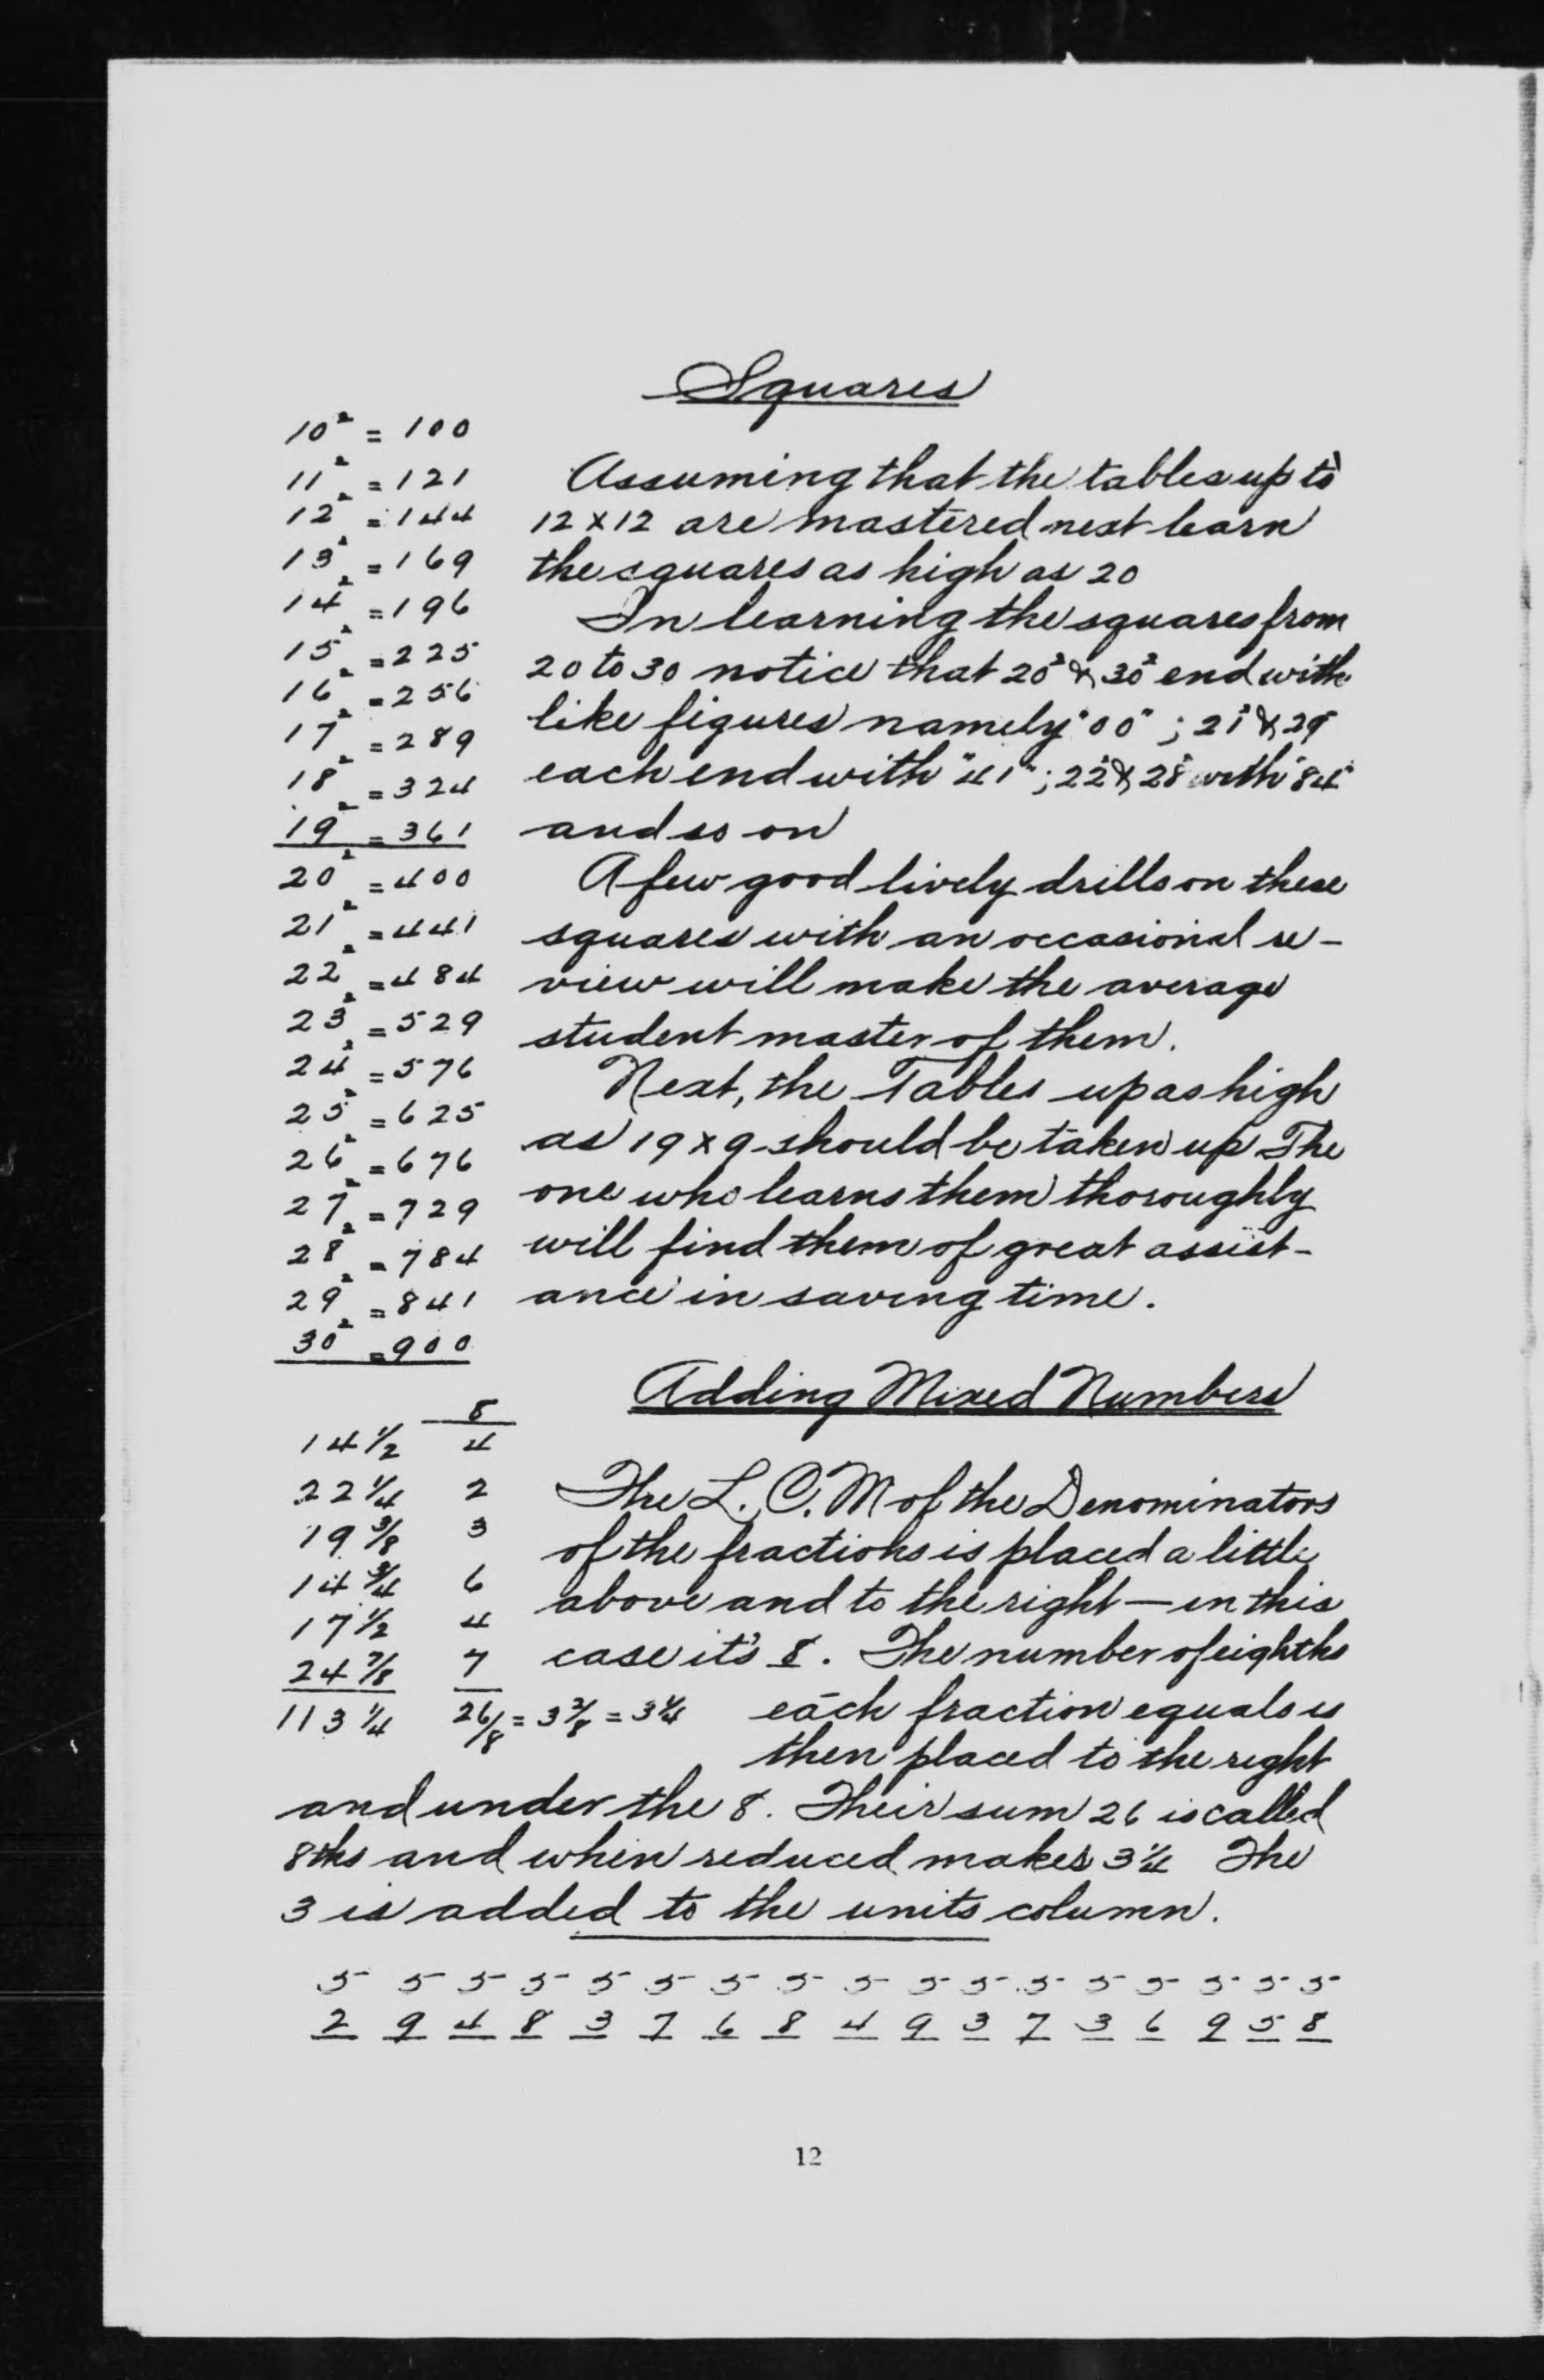 Squares
10² = 100
11² = 121
12² = 144
13² = 169
14² = 196
15² = 225
16² = 256
17² = 289
18² = 324
19² = 361
20² = 400
21² = 441
22² = 484
23² = 529
24² = 576
25² = 625
26² = 676
27² = 729
28² = 784
29² = 841
30² = 900
Assuming that the tables up to
12 x 12 are mastered next learn
the squares as high as 20
In learning the squares from
20 to 30 notice that 20² & 30² end with
like figures namely "00" ; 21² & 29²
each end with "41" ; 22² & 28² with "84"
and so on
A few good lively drills on these
squares with an occasional re-
view will make the average
student master of them.
Next, the Tables up as high
as 19 x 9 should be taken up The
one who learns them thoroughly
will find them of great assist-
ance in saving time.
Adding Mixed Numbers
8
14 1/2 4
22 1/4 2
19 3/8 3
14 3/4 6
17 1/2 4
24 7/8 7
113 1/4 26/8 = 3 2/8 = 3 1/4
The L. C. M of the Denominators
of the fractions is placed a little
above and to the right — in this
case it's 8. The number of eighths
each fraction equals is
then placed to the right
and under the 8. Their sum 26 is called
8ths and when reduced makes 3 1/4 The
3 is added to the units column.
5 5 5 5 5 5 5 5 5 5 5 5 5 5 5 5 5
2 9 4 8 3 7 6 8 4 9 3 7 3 6 9 5 8
12